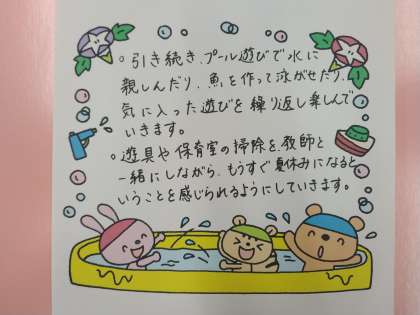 ○引き続き、プール遊びで水に
親しんだり、魚を作って泳がせたり、
気に入った遊びを繰り返し楽しんで
いきます。
○遊具や保育室の掃除を教師と
一緒にしながら、もうすぐ夏休みになると
いうことを感じられるようにしていきます。